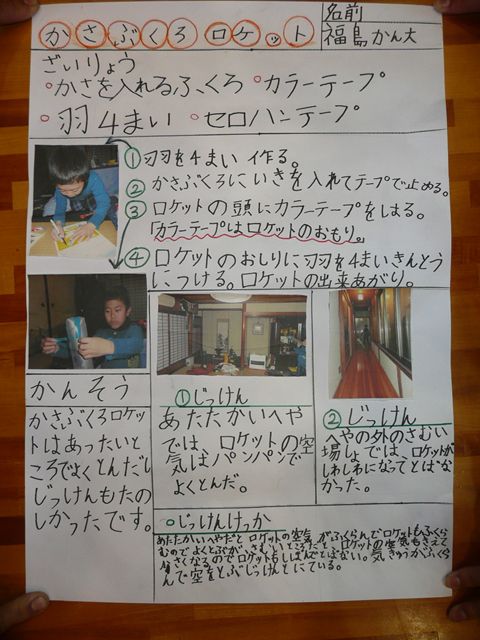 かさぶくろロケット
名前
福島かん大
ざいりょう
・かさを入れるふくろ ・カラーテープ
・羽4まい ・セロハンテープ
① 羽を4まい作る。
② かさぶくろにいきを入れてテープで止める。
③ ロケットの頭にカラーテープをはる。
「カラーテープはロケットのおもり。
④ ロケットのおしりに羽を4まいきんとう
につける。ロケットの出来あがり。
かんそう
かさぶくろロケッ
トはあったいと
ころでよくとんだし
じっけんもたの
しかったです。
①じっけん
あたたかいへや
では、ロケットの空
気はパンパンで
よくとんだ。
② じっけん
へやの外のさむい
場しょでは、ロケットが
しわしわになってとばな
かった。
○じっけんけっか
あたたかいへやだとロケットの空気がふくらんでロケットもふくら
むのでよくとぶが、さむいところだとロケットの空気もきえて
小さくなるのでロケットもしぼんでとばない。気きゅうがふくら
んで空をとぶじっけんとにている。